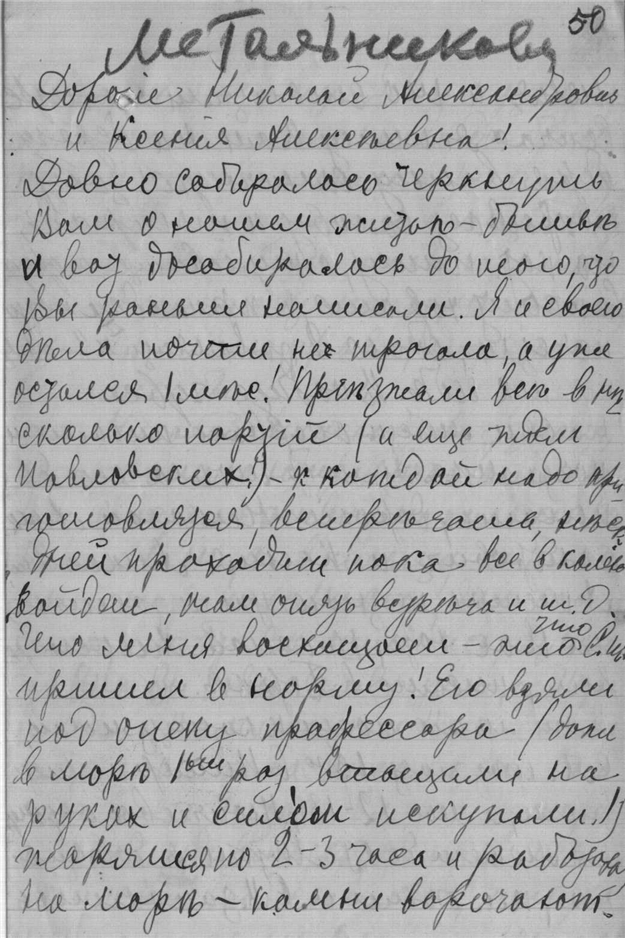 50
Метальникова
Дорогiе Николай Александровичъ
и Ксенiя Алексѣевна!
Давно собиралась черкнуть
Вам о нашем житьѣ-бытьѣ
и вот дособиралась до того, что
Вы раньше написали. Я и своего
дѣла почти не трогала, а уже
остался 1 мѣс! Прiѣзжали всѣ в нѣ
сколько партiй (и еще ждем
Павловских!) – к каждой надо при
готовляться, встрѣчать, нѣск.
дней проходит пока все в колею
войдет, там опять встрѣча и т.д.
Что меня восхищает – это что С. Ив.
пришел в норму! Его взяли
под опеку профессора (даже
в море 1ый раз втащили на
руках и силой искупали!)
жарятся по 2-3 часа и работа
на морѣ – камни ворочают.